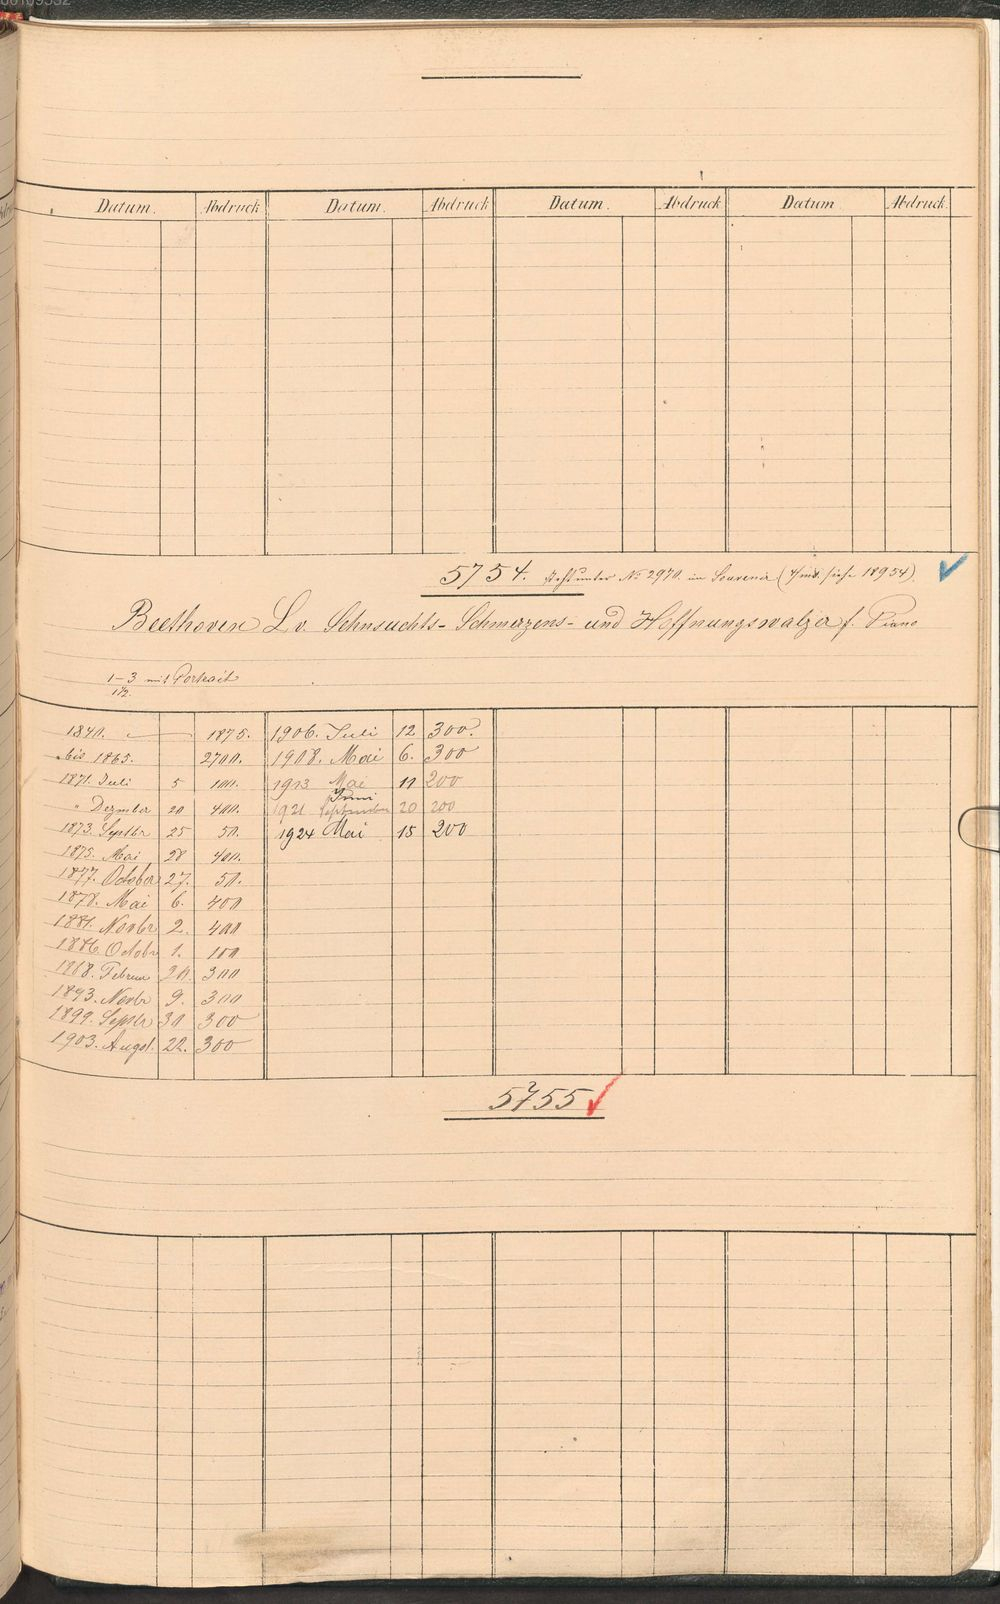 Datum. Abdruck Datum. Abdruck Datum. Abdruck Datum Abdruck.
5754. unter No 2970. im Souvenir (4/ms. siehe 18954). ✓
Beethoven L. v. Sehnsuchts- Schmerzens- und Hoffnungswalzer f. Piano
1–3 mit Portrait
1/2.
1840. — 1875. 1906. Juli 12 300.
bis 1865. 2700. 1908. Mai 6. 300
1871. Juli 5 100. 1913 Mai 11 200
Juni
" Dezmber 20 400. 1921 September 20 200
1873. Septbr 25 50. 1924 Mai 15 200
1875. Mai 28 400.
1877. October 27. 50.
1878. Mai 6. 400
1881. Novbr 2. 400
1886. Octobr 1. 100
Februar 20. 300
1893. Novbr 9. 300
1899. Septbr 30 300
1903. Augst. 22. 300
5755 ✓